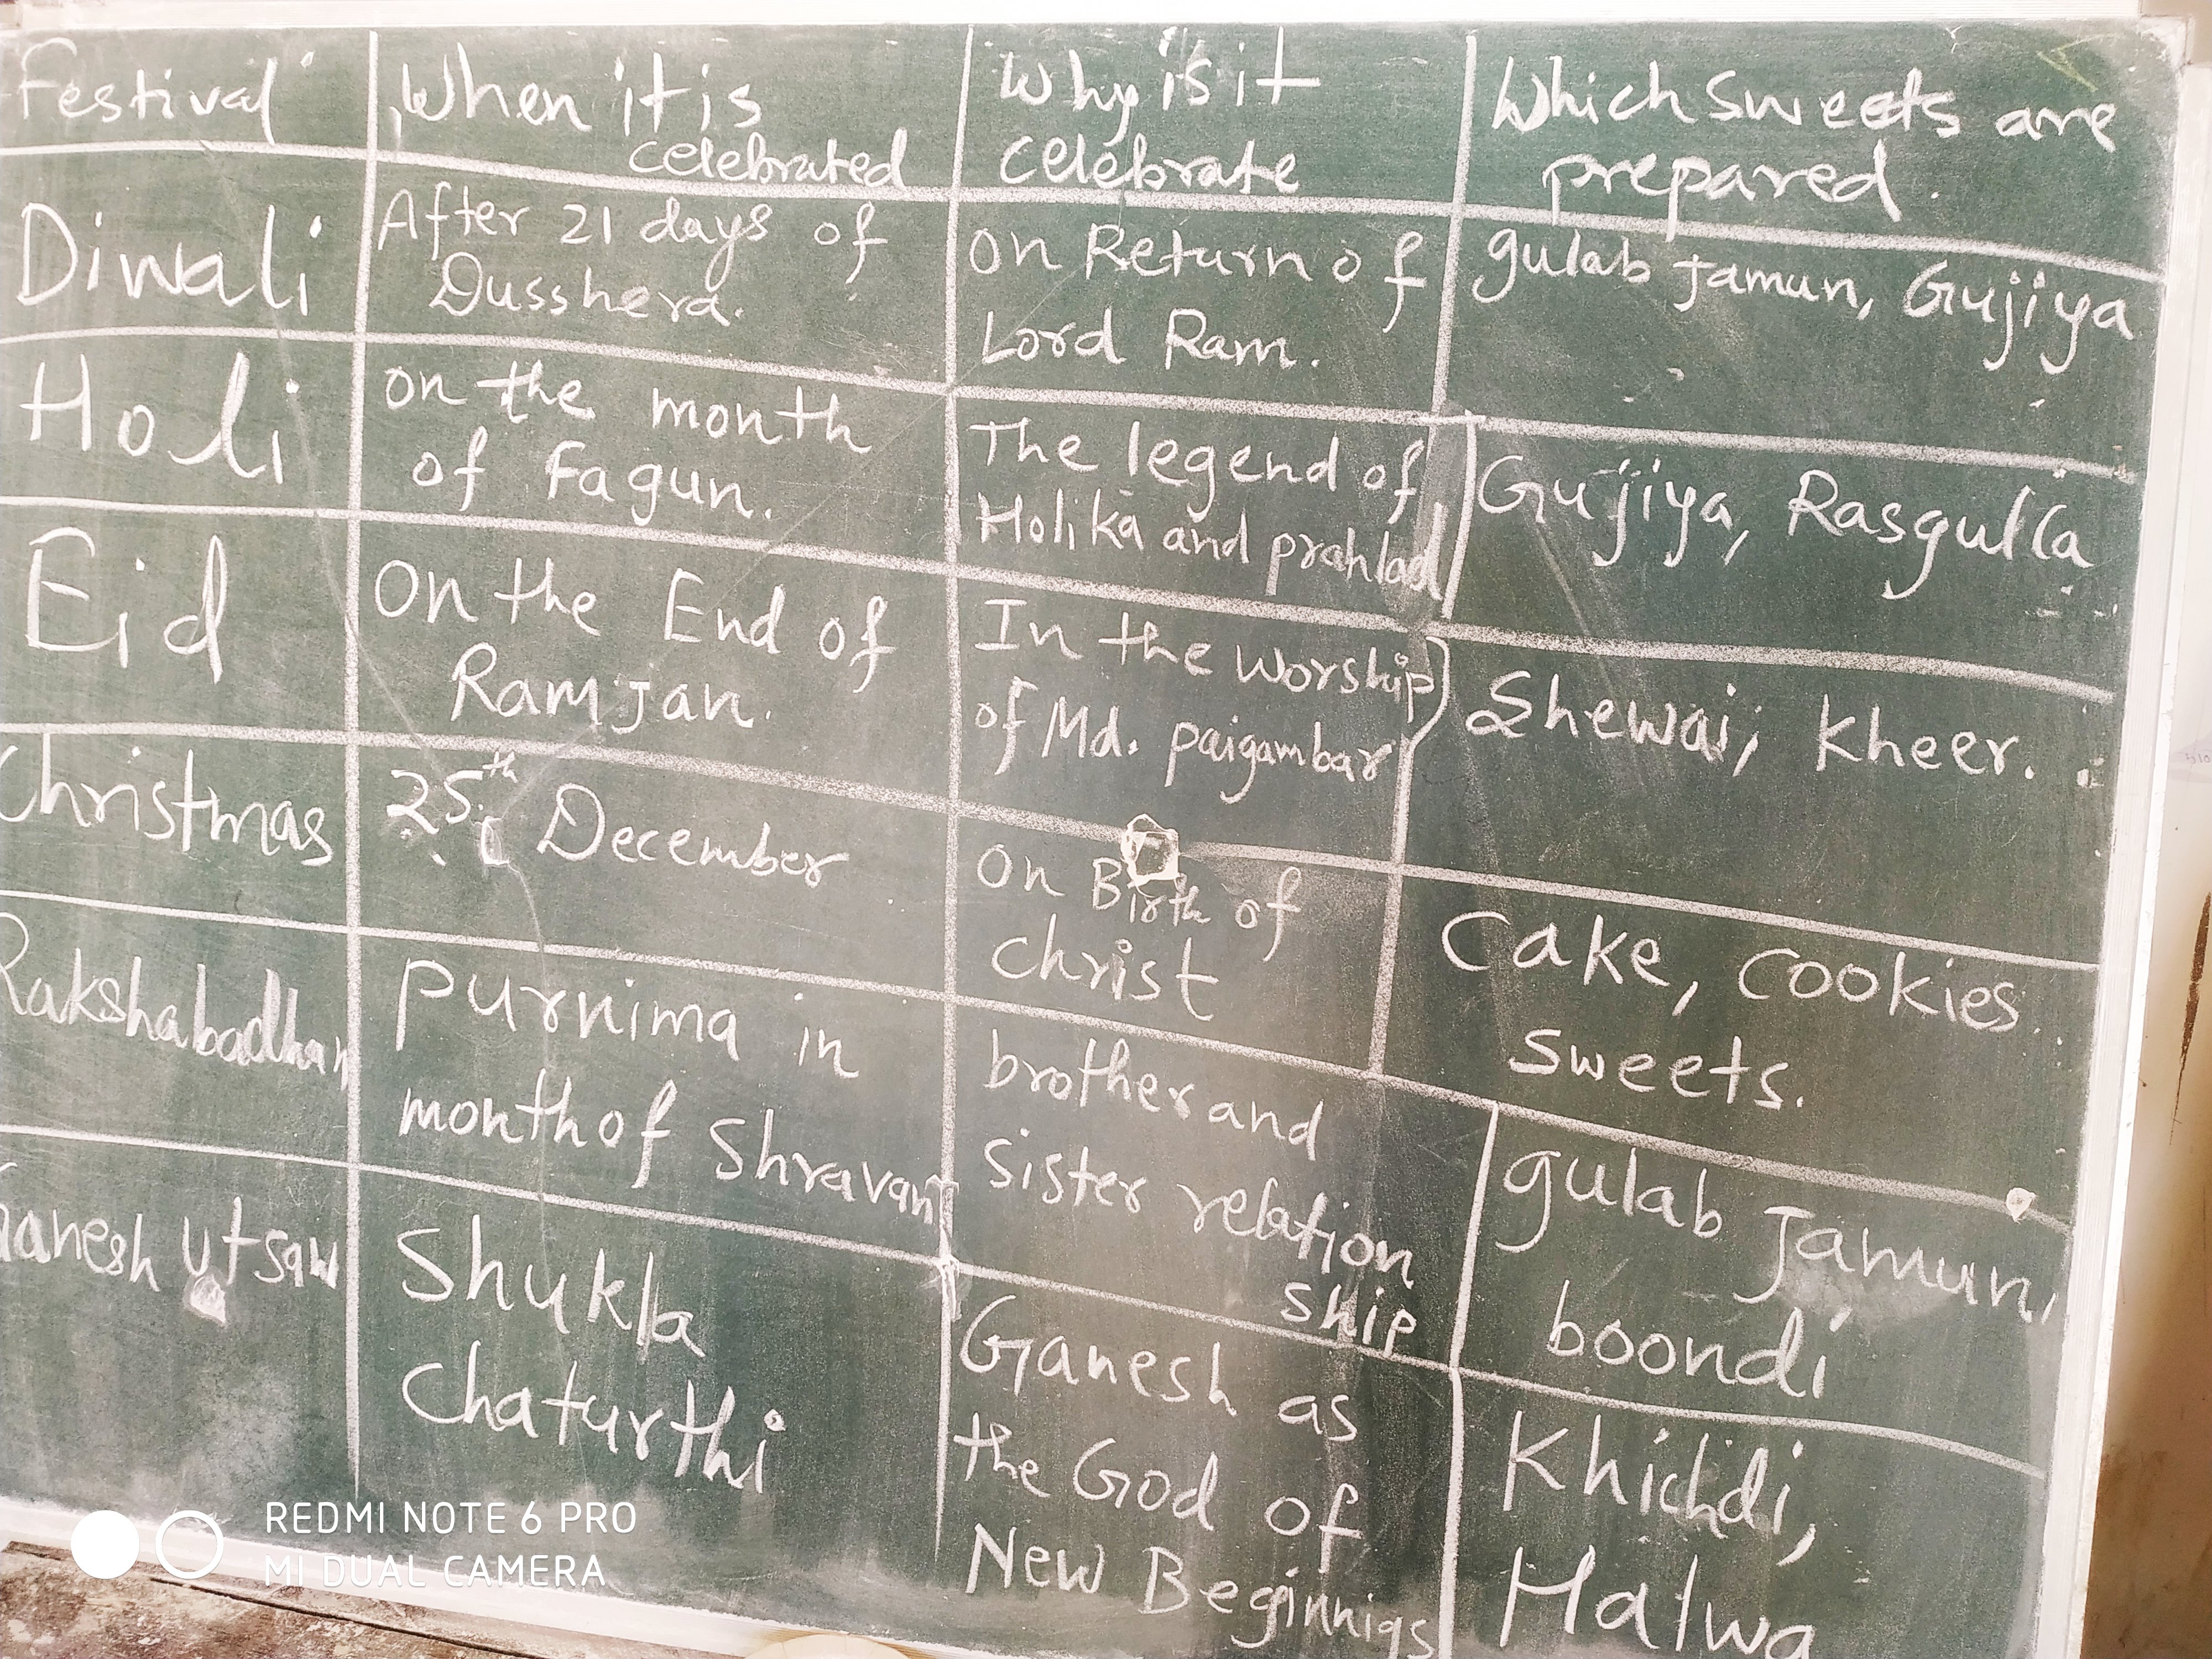 Festival
When it is
celebrated
Why is it
celebrate
Which sweets are
prepared.
Diwali
After 21 days of
Dusshera.
on Return of
Lord Ram.
gulab Jamun, Gujiya
Holi
on the month
of Fagun.
The legend of
Holika and prahlad
Gujiya, Rasgulla
Eid
On the End of
Ramjan.
In the worship
of Md. paigambar
Shewai, Kheer.
Christmas
25th December
on Birth of
christ
Cake, cookies.
sweets.
Rakshabadhan
purnima in
month of Shravan
brother and
sister relation
ship
gulab Jamun,
boondi
Ganesh utsaw
Shukla
Chaturthi
Ganesh as
the God of
New Beginnigs
Khichdi,
Halwa
REDMI NOTE 6 PRO
MI DUAL CAMERA